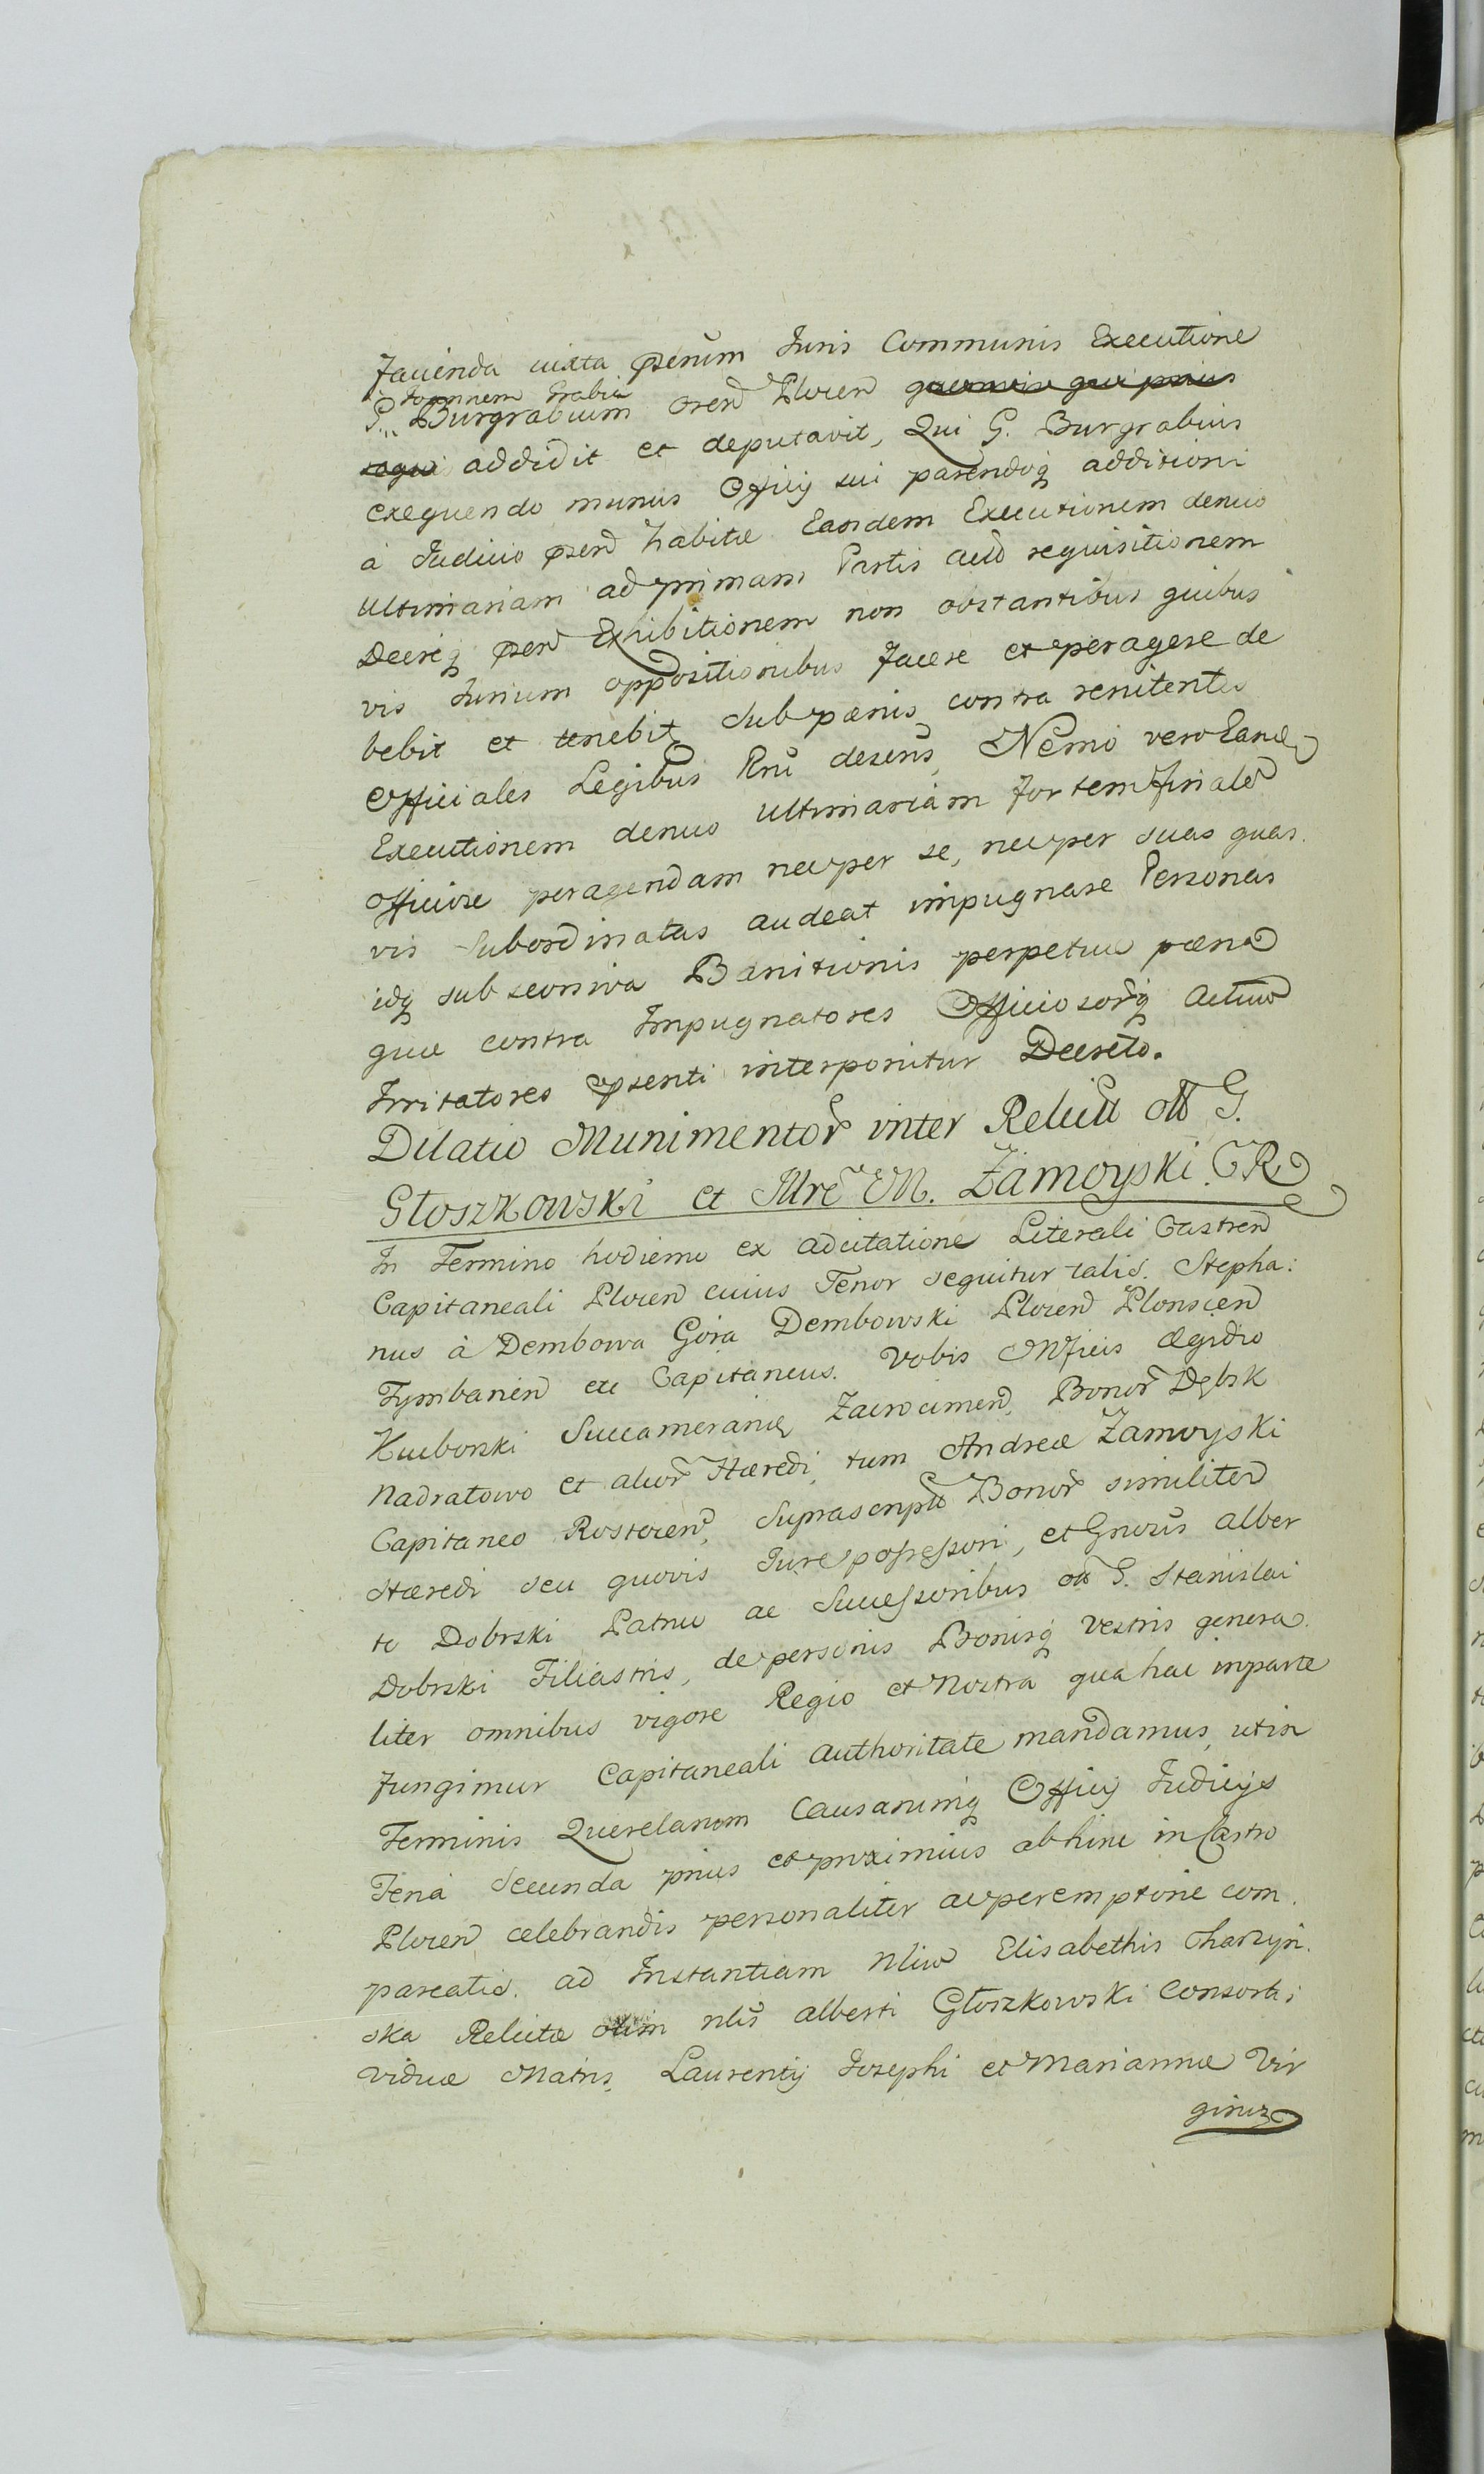 facienda iuxta pserum Juris Communis Executione
Joannem Grabia
G. Burgrabium Plocen
addidit et deputavit, Qui G. Burgrabius
exequendo munus Officij sui parendoq additioni
à Judicio psen habitæ Eandem Executionem denuo
ultimariam ad primam Partis requisitionem
Decriq psen Exhibitionem non obstantibus quibus
vis Jurium oppositionibus facere et peragere de
bebit et tenebit Sub pænis contra renitentes
Officiales Legibus Rni desens, Nemo vero Eand
Executionem denuo ultimariam fortem finalem
officiose peragendam nec per se, nec per suas quas
vis Subordinatas audeat impugnare Personas
idq sub Banitionis perpetuæ pæna
quæ contra Impugnatores Officiosorq actuu
Irritatores psenti interponitur Decreto.
Dilatio Munimentor inter Relict olt G.
Głoszkowski et Illre M. Zamoyski C R
In Termino hodierno ex adcitatione Literali Castren
Capitaneali Plocen cuius Tenor sequitur talis. Stepha:
nus à Dembowa Góra Dembowski Plocen Plonscen
Tymbanien etc Capitaneus. Vobis Mficis Ægidio
Kuiborski Succamerario Zacrocimen, Bonor Dębsk
Nadratowo et alior Hæredi, tum Andreæ Zamoyski
Capitaneo Rostocen, Suprascript Bonor similiter
Hæredi seu quovis Jure possessori, et Gnosis Alber
to Dobrski Patruo ac Successoribus olt G. Stanislai
Dobrski Filiastris, de personis Bonisq vestris genera
liter omnibus vigore Regio et Nostra qua hac in parte
fungimur Capitaneali authoritate mandamus, ut in
Terminis Querelarum Causarumq Officij Judicijs
Feria Secunda prius et proximius abhinc in Castro
Plocen celebrandis personaliter ac peremptorie com
pareatis. ad Instantiam Nliu Elisabethis Tharzyn
ska Relictæ olim nlis Alberti Głoszkowski Consortis
Viduæ Matris, Laurentij Josephi et Mariannæ Vir
ginis